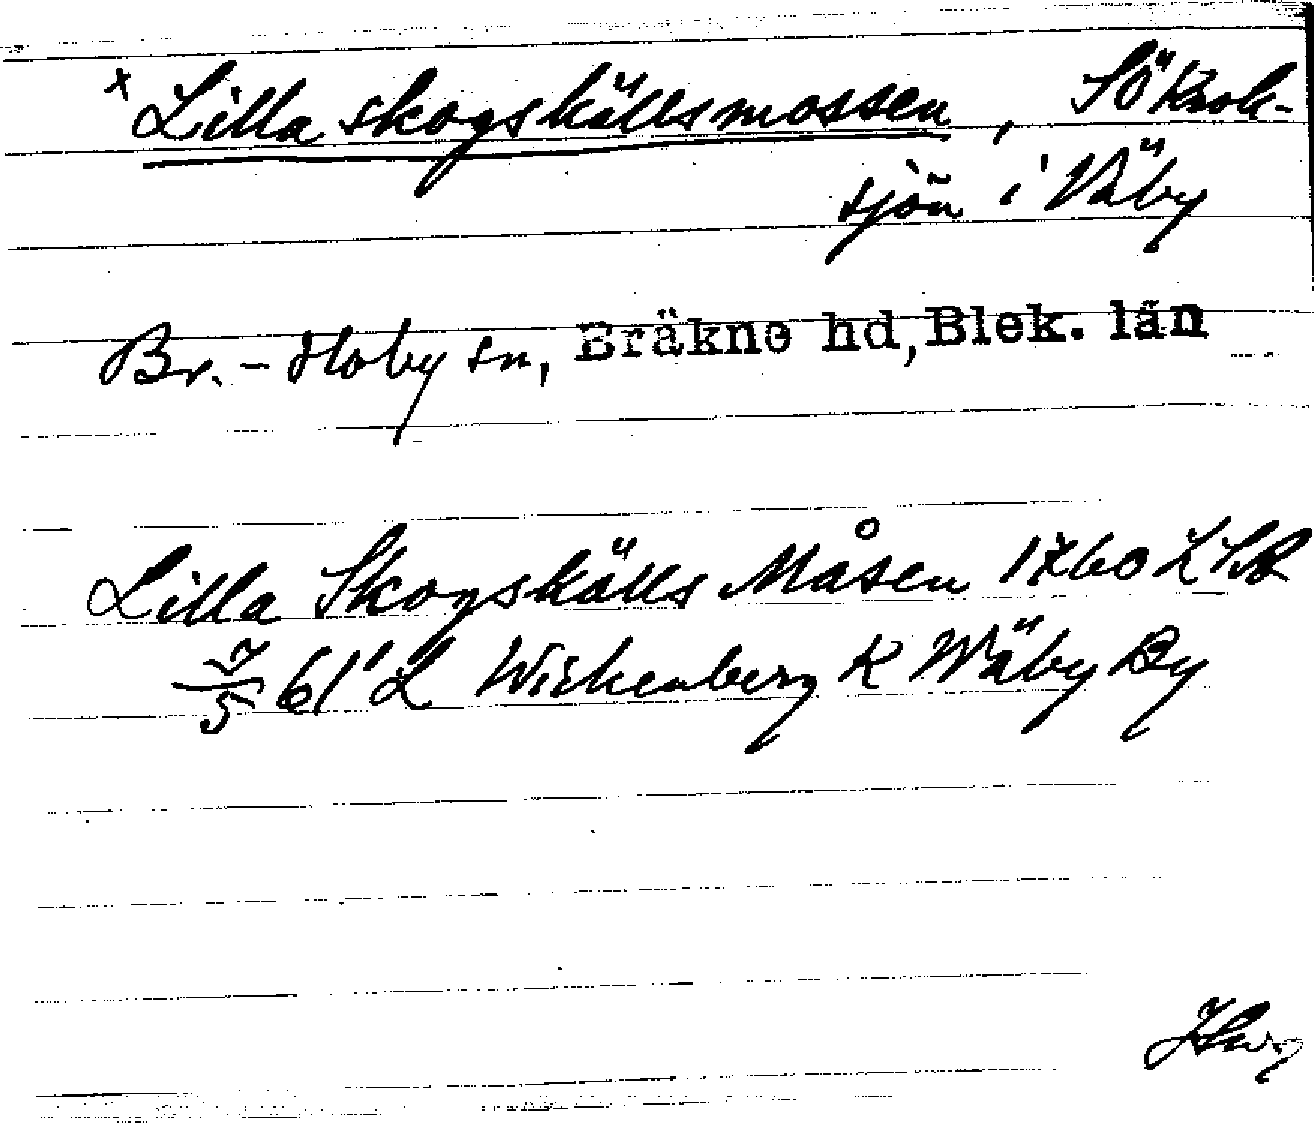 x Lilla skogskällsmossen, SÖ Krok-
sjön i Väby
Br.-Hoby sn, Bräkne hd, Blek. län
Lilla Skogskälls Måsen 1760 LSA
7/5 61' L Wickenberg K Wäby By